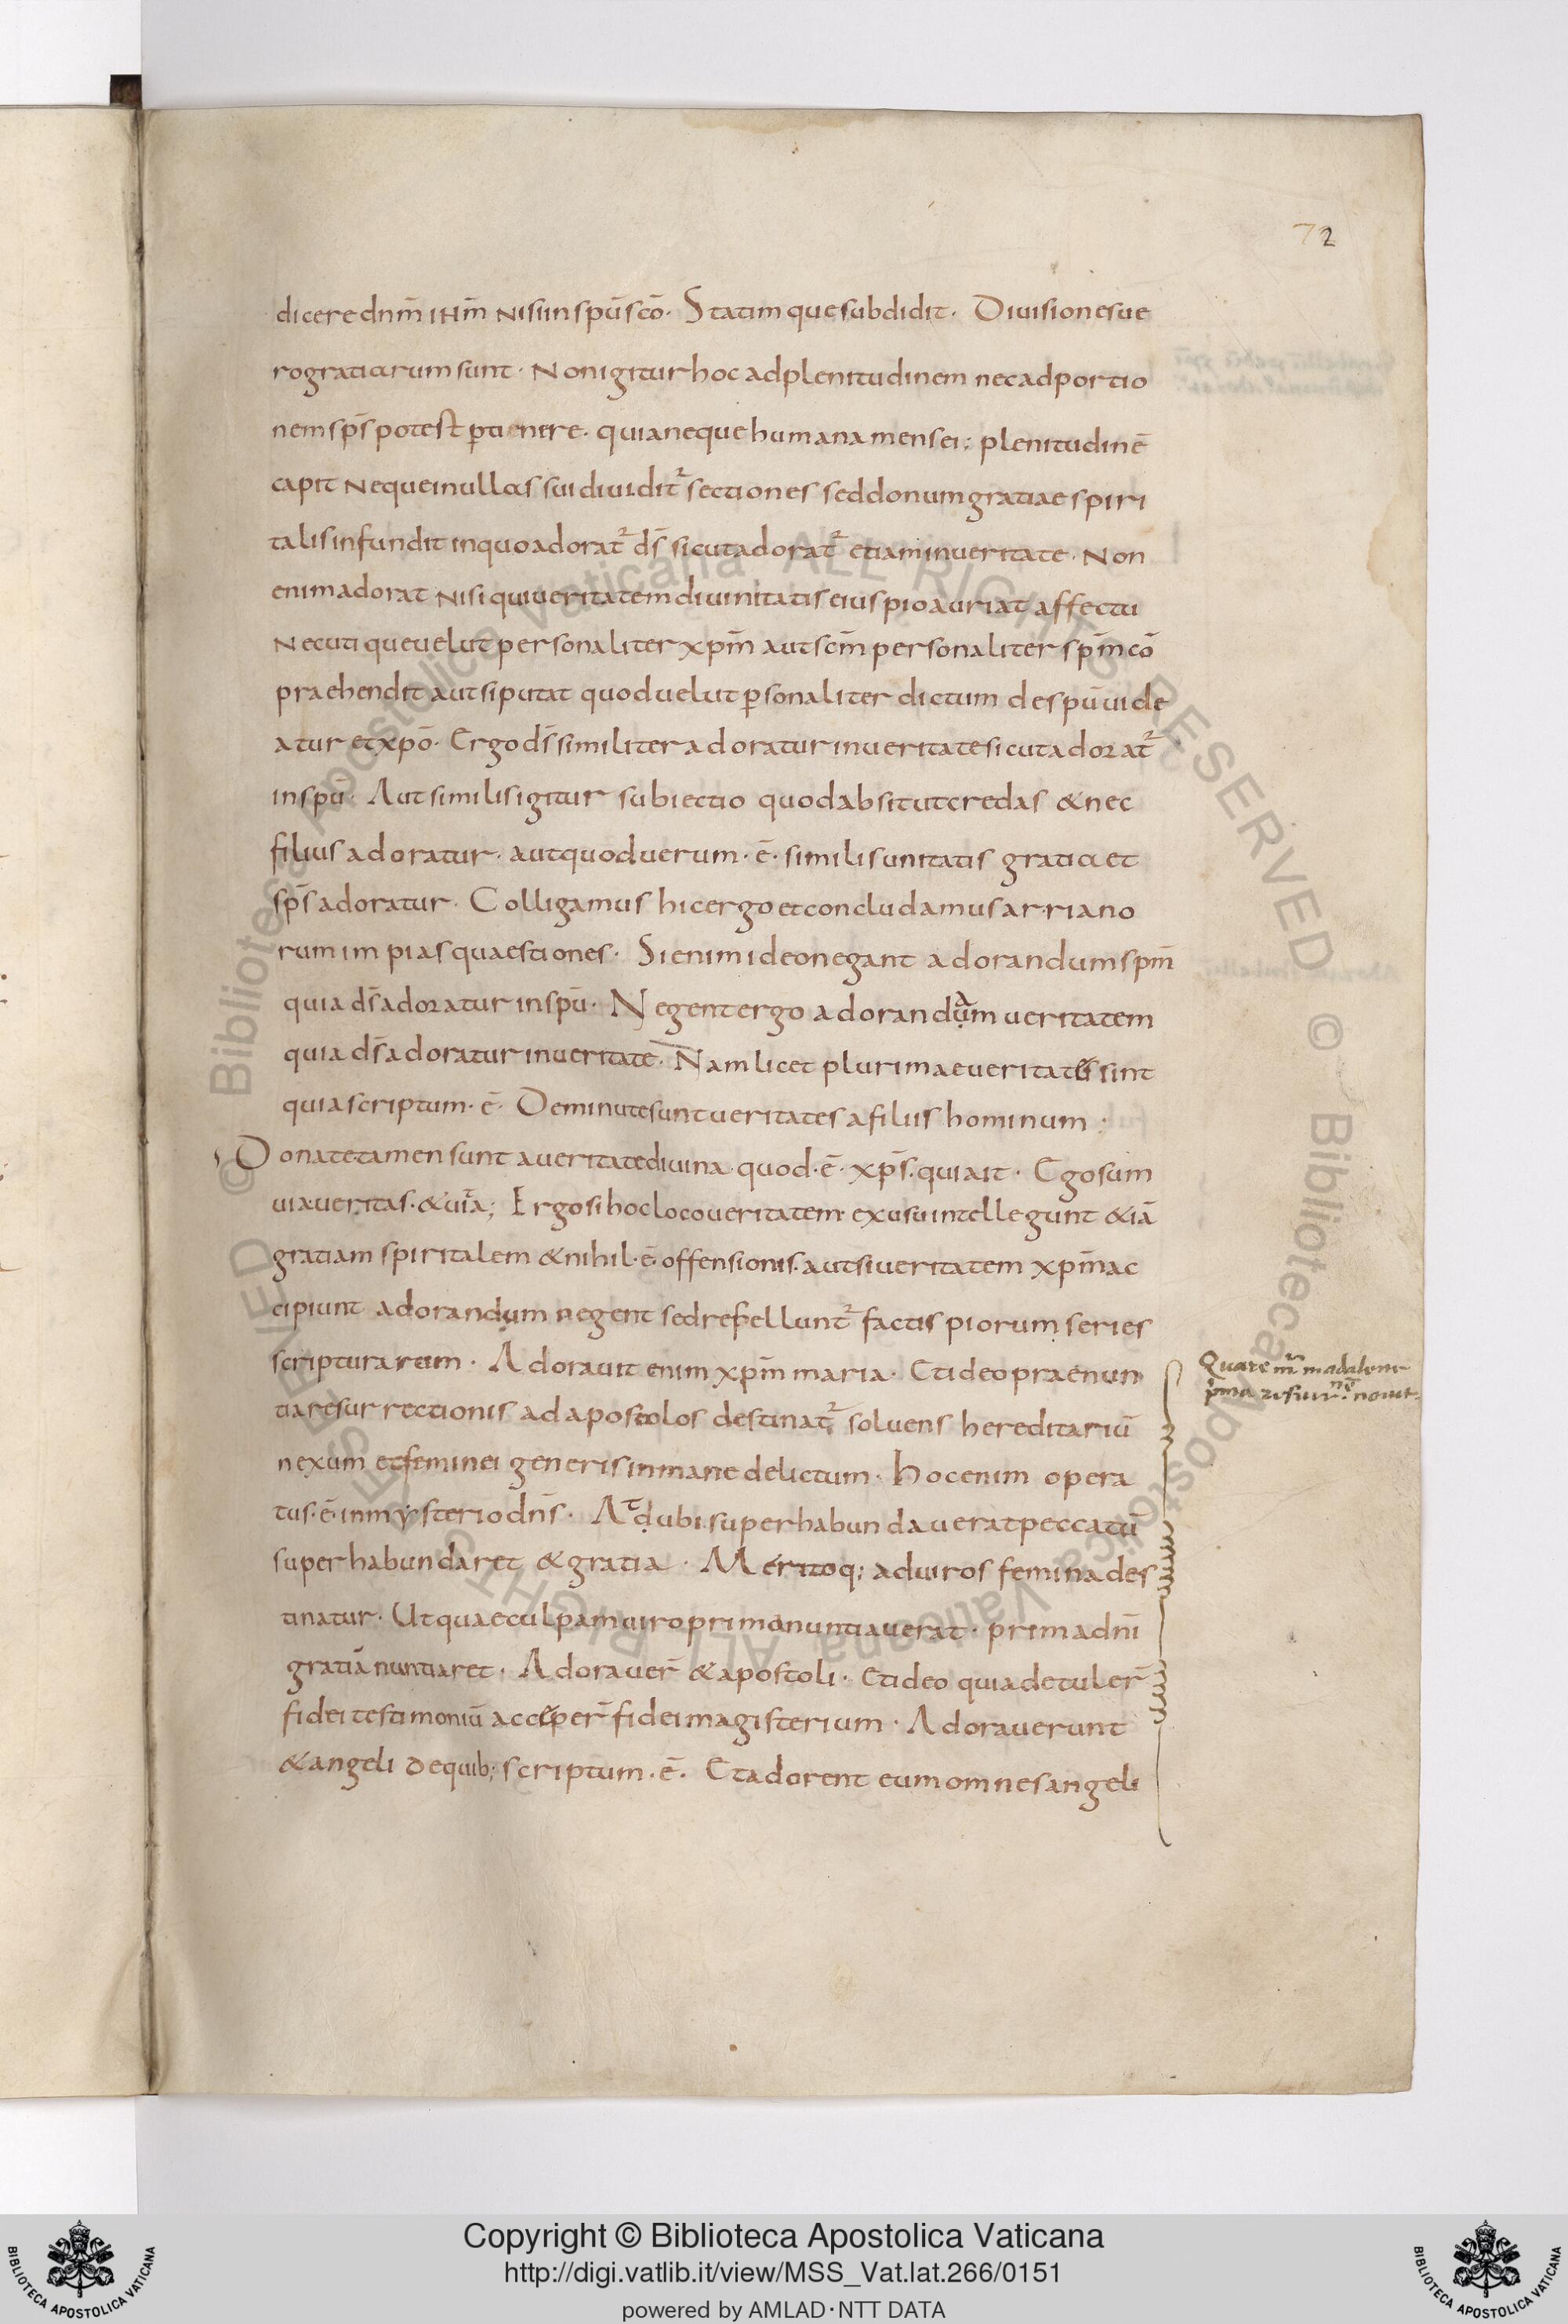 72
dicere dnm̄ ihm̄ nisi in spū scō. Statimque subdidit. Divisiones ue
ro gratiarum sunt. Non igitur hoc ad plenitudinem nec ad portio
nem sps̄ potest ꝑtienere. quia neque humana mens ei; plenitudinē
capit neque in ullas sui diuidit᷒ sectiones sed donum gratiae spiri
talis infundit in quo adorat᷒ ds̄ sicut adorat᷒ etiam in ueritate. Non
enim adorat nisi qui ueritatem diuinitatis eius pio auriat affectu
Nec utique uelut personaliter xpm̄ aut scm̄ personaliter spm̄ cō
praehendit aut si putat quod uelut ꝑsonaliter dictum de spū uide
atur et xpō. Ergo ds̄ similiter adoratur in ueritate sicut adorat᷒
in spū. Aut similis igitur subiectio quod absit ut credas & nec
filius adoratur. aut quod uerum. ē. similis unitatis gratia et
sps̄ adoratur. Colligamus hic ergo et concludamus arriano
rum impias quaestiones. Si enim ideo negant adorandum spm̄
quia ds̄ adoratur in spū. Negent ergo adorandụam ueritatem
quia ds̄ adoratur in ueritate. Nam licet plurimae ueritates sint
quia scriptum. ē. Deminute sunt ueritates a filiis hominum;
Donate tamen sunt a ueritate diuina quod. ē. xps̄. qui ait. Ego sum
uia. ueritas. & uīta; Ergo si hoc loco ueritatem exusu intellegunt & iā
gratiam spiritalem & nihil. ē. offensionis. aut si ueritatem xpm̄ ac
cipiunt adorandum negent sed refellunt᷒ factis piorum series
scripturarum. Adorauit enim xpm̄ maria. Et ideo praenun
tia resurrectionis ad apostolos destinat᷒ soluens hereditariū
nexum et feminei generis inmane delictum. Hoc enim opera
tus. ē. in mysterio dns̄. Atḍ ubi superhabundauerat peccatū
superhabundaret & gratia. Meritoq; ad uiros femina des
tinatur. Ut quae culpam uiro prima nuntiauerat. prima dnī
gratiā nuntiaret. Adorauer̄ & apostoli. Et ideo quia detuler̄
fidei testimoniū acceper̄ fidei magisterium. Adorauerunt
& angeli de quib; scriptum. ē. Et adorent eum omnes angeli
Copyright © Biblioteca Apostolica Vaticana
http://digi.vatlib.it/view/MSS_Vat.lat.266/0151
powered by AMLAD·NTT DATA
BIBLIOTECA APOSTOLICA VATICANA
BIBLIOTECA APOSTOLICA VATICANA
© Biblioteca Apostolica Vaticana ALL RIGHTS RESERVED © Biblioteca Apostolica Vaticana ALL RIGHTS RESERVED